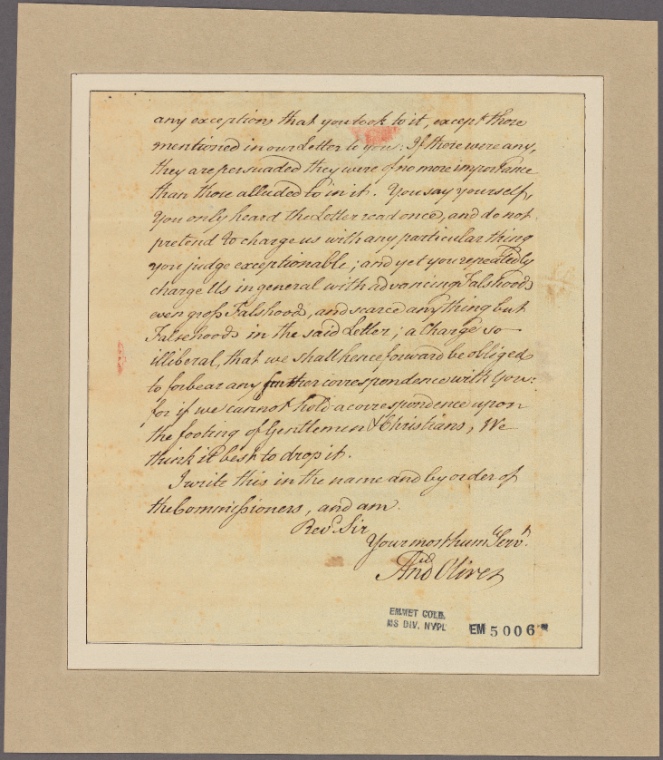 any exceptions that you took to it, except those
mentioned in our Letter to you: If there were any,
they are persuaded they were of no more importance
than those alluded to in it. You say yourself,
You only heard the Letter read once, and do not
pretend to charge us with any particular thing
you judge exceptionable; and yet you repeatedly
charge Us in general with advancing Falshood,
even gross Falshood, and scarce any thing but
Falsehoods in the said Letter; a Charge so
illiberal, that we shall henceforward be obliged
to forbear any further correspondence with You:
for if we cannot hold a correspondence upon
the footing of Gentlemen & Christians, We
think it best to drop it.
I write this in the name and by order of
the Commissioners, and am
Revd. Sir
Your most hume Servt.
Andw Oliver
EMMET COLL.
MS DIV. NYPL
EM 5006